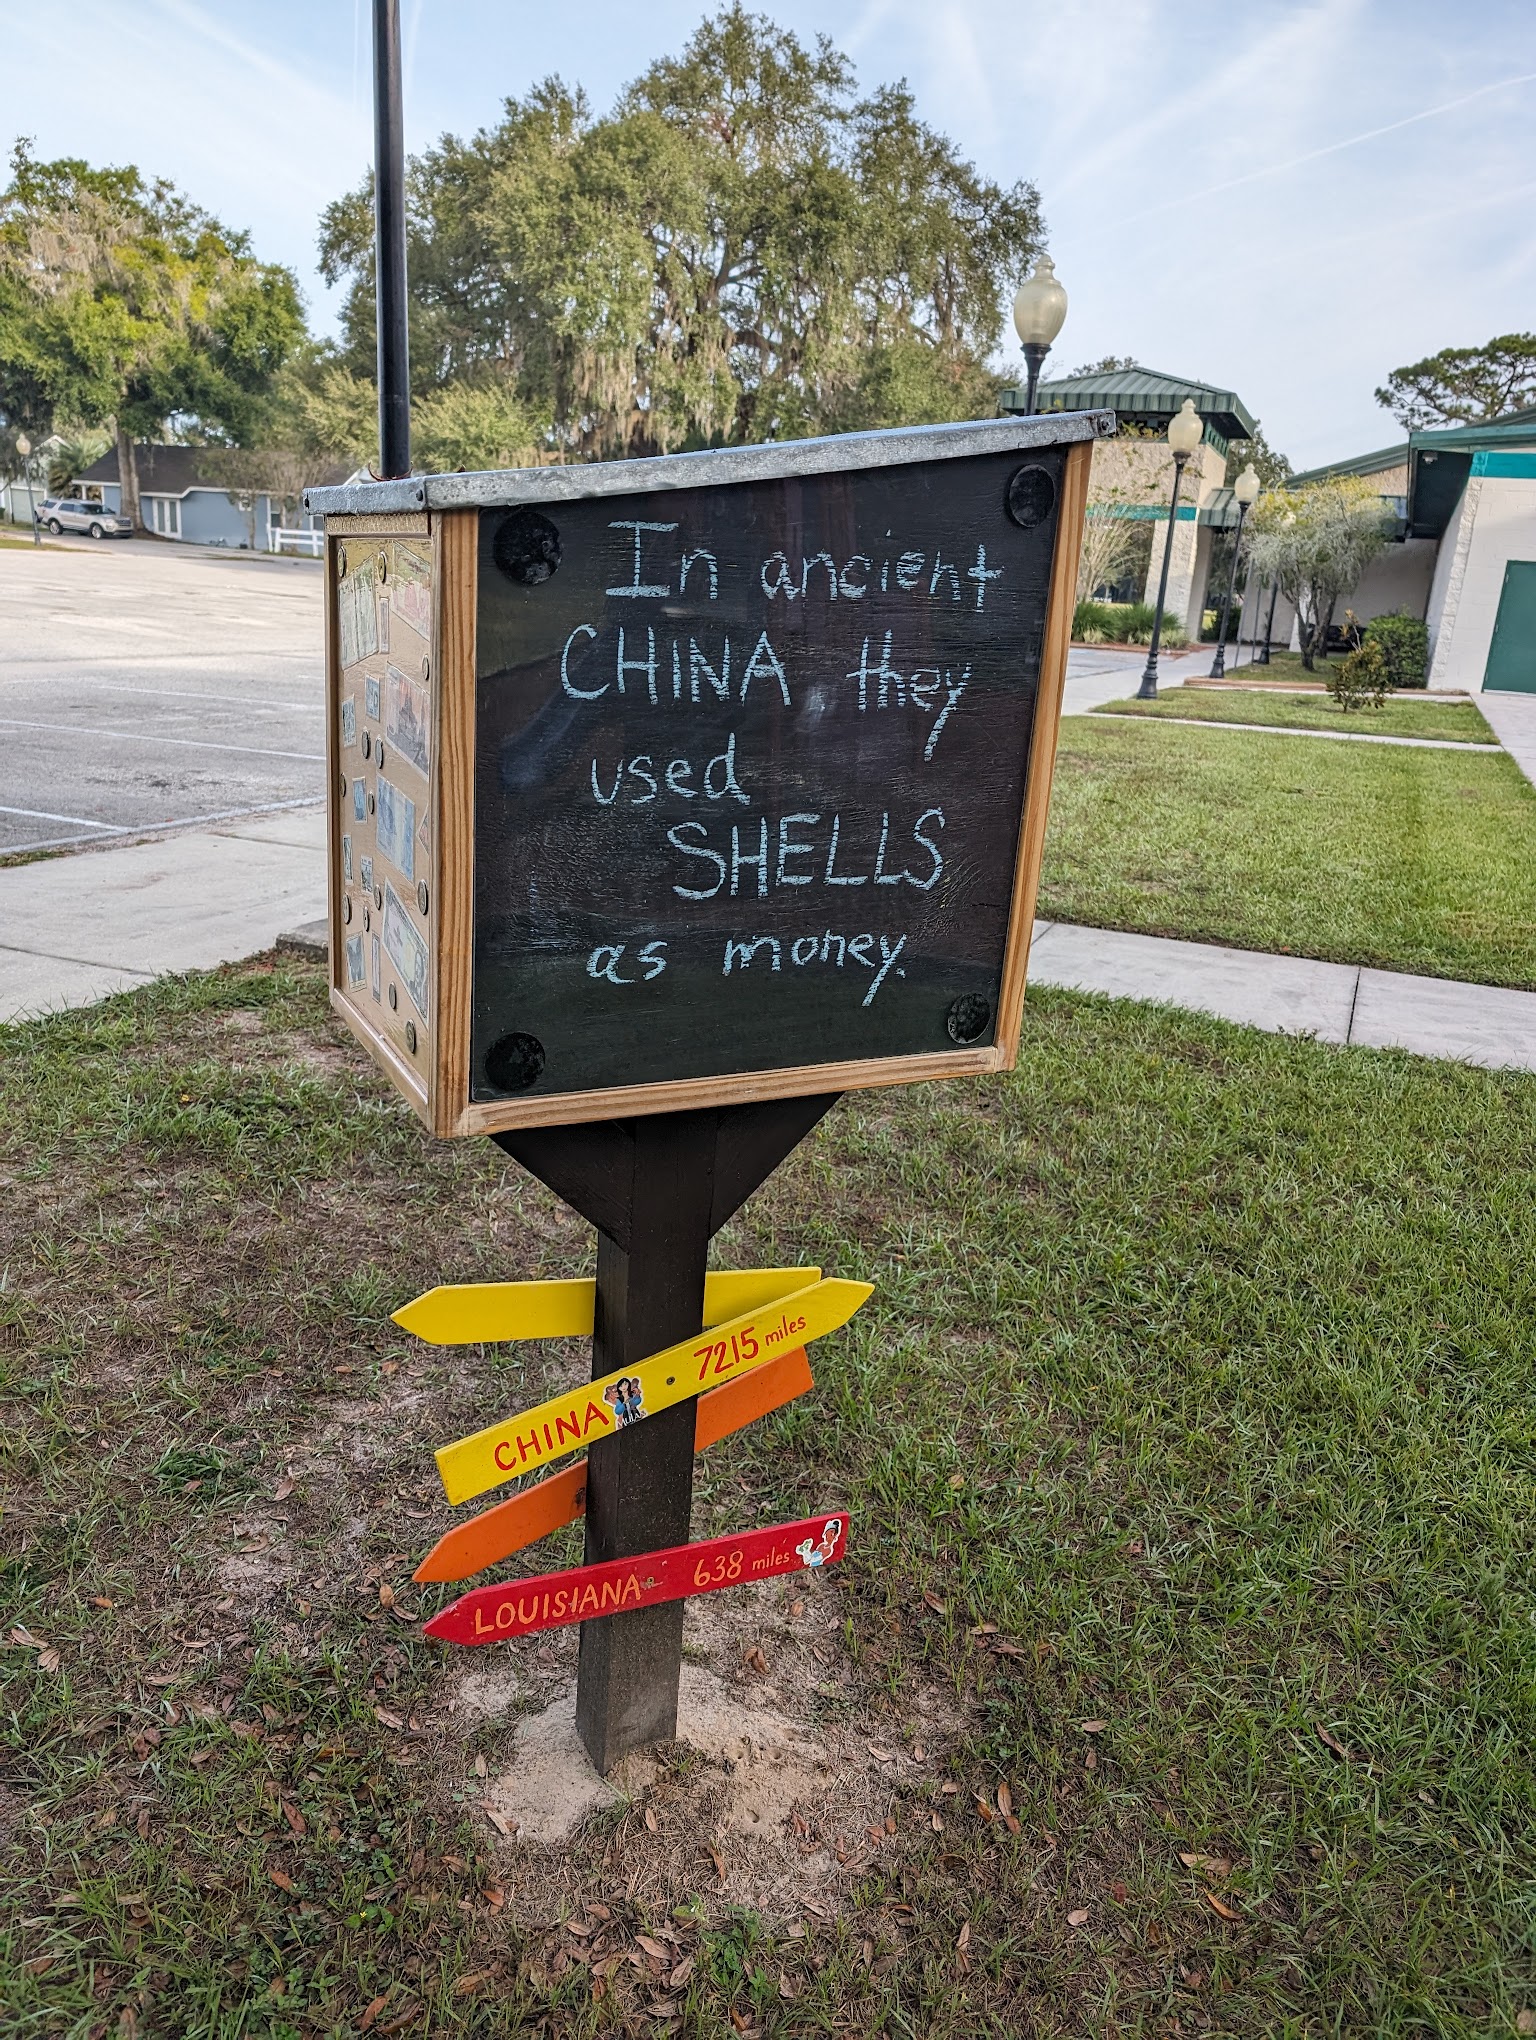 In ancient
CHINA they
used
SHELLS
as money.
CHINA MULAN 7215 miles
LOUISIANA 638 miles